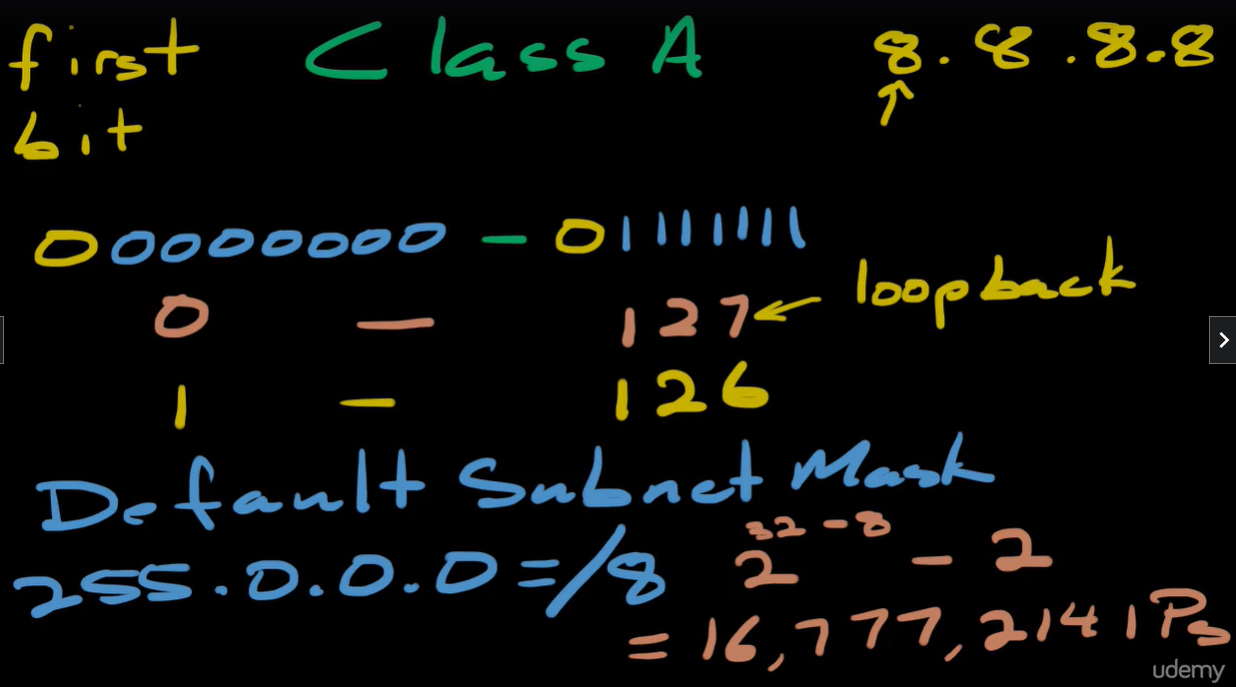 first Class A 8.8.8.8
bit
00000000 - 01111111
0 - 127 ← loopback
1 - 126
Default Subnet Mask
255.0.0.0 = /8 2^32-8 - 2
= 16,777,214 IPs
udemy